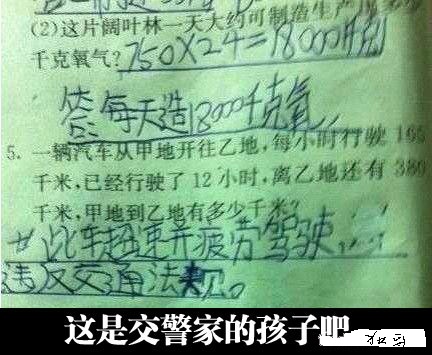 (2)这片阔叶林一天大约可制造生产
千克氧气?750×24=18000千克
答:每天造18000千克氧。
5.一辆汽车从甲地开往乙地,每小时行驶165
千米,已经行驶了12小时,离乙地还有380
千米,甲地到乙地有多少千米?
此车超速并疲劳驾驶,
违反交通法规。
这是交警家的孩子吧